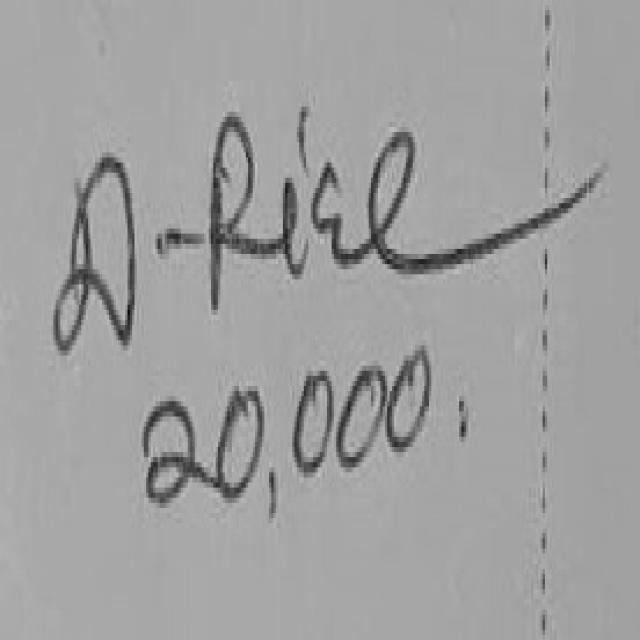 A-Riel
20,000.